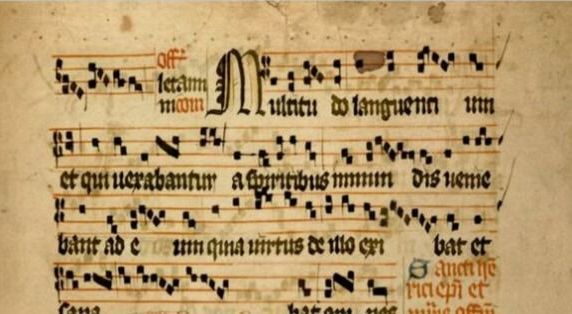 off
letam
in com Multitu do languenti um
et qui uexabantur a spiritibus inmun dis uenie
bant ad e um quia uirtus de illo exi bat et
Sancti
rici epi et
sana bat om nes